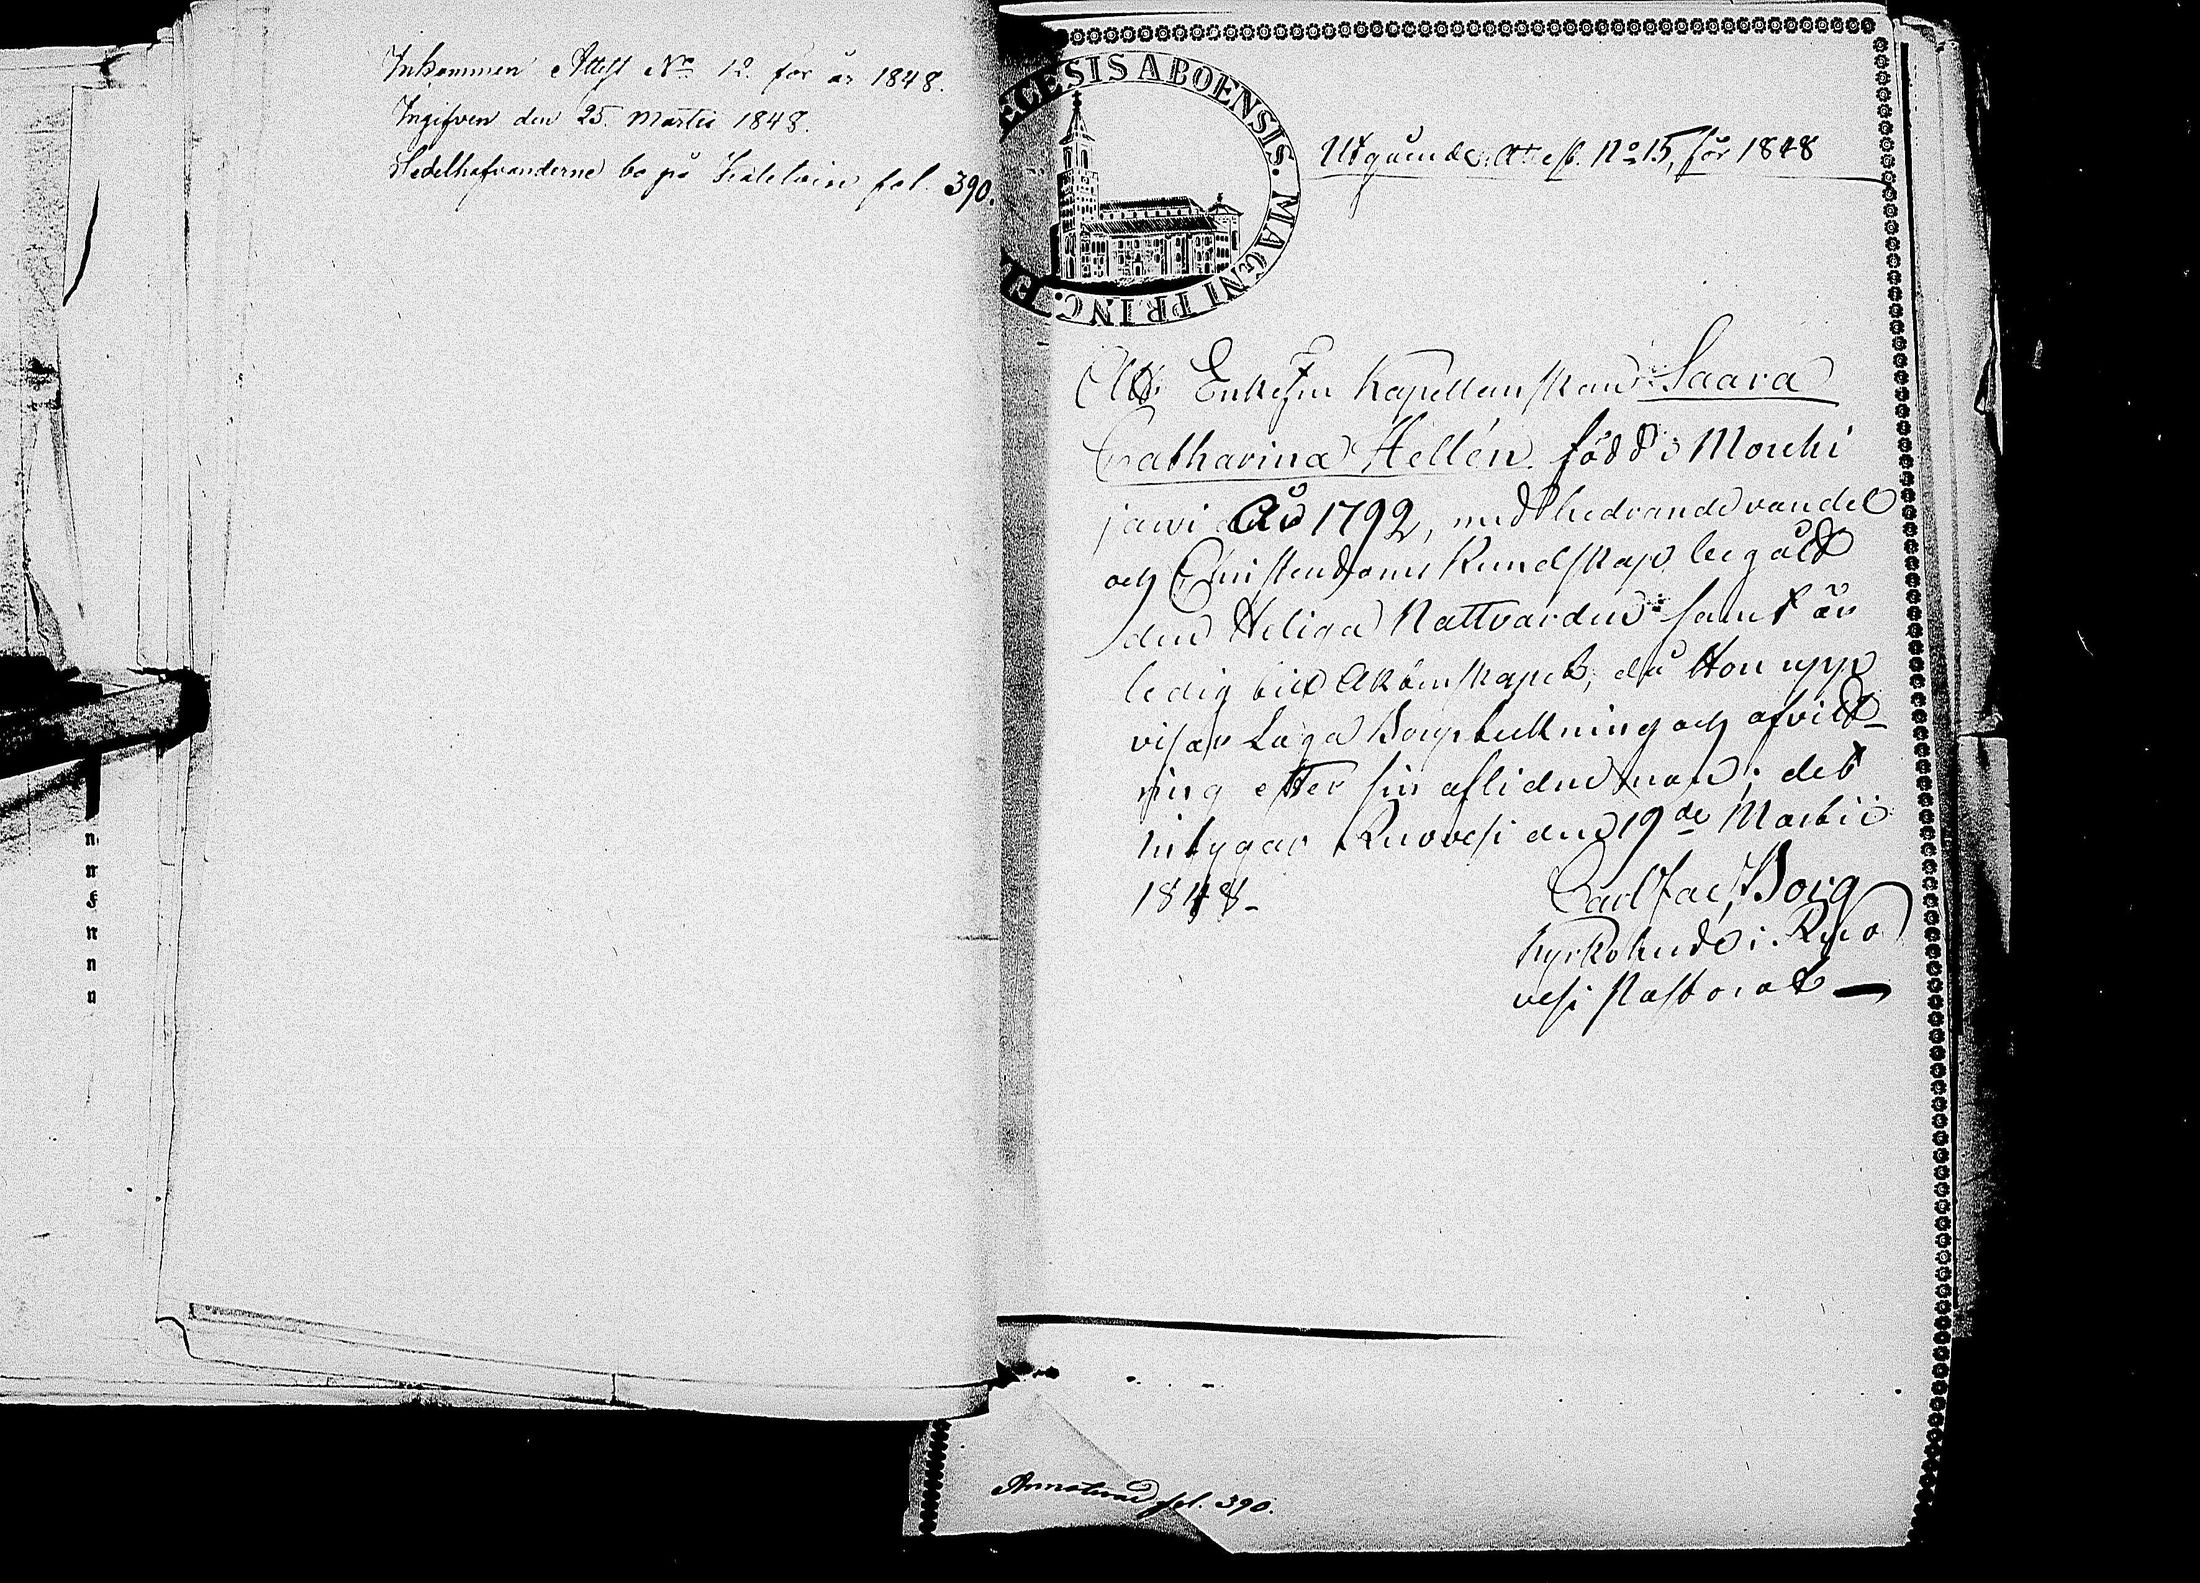 Inkommen Attest No 12. för år 1848.
Ingifven den 25. Martii 1848.
Sedelhafvanderne bo på fol. 390.
ECESIS ABOENSIS. MAGNI PRINC. FI
Utgående Attest. No 15, för 1848
Att Enkefru Kapellanskan Saara
Catharina Hellén född i Mouhi
järvi år 1792, med hedrande vandel
och Christendoms Kundskap begått
den Heliga Nattvarden samt är
ledig till Äktenskapet, då Hon upp
visar Laga Bouptekning och afvitt-
ring efter sin aflidne man; det
bitygar Ruovesi den 19de Martii
1848-
Carl Jac. Borg
Kyrkoherde i Ruo
vesi Pastorat
Annoterad fol. 390.
n
n
n
n